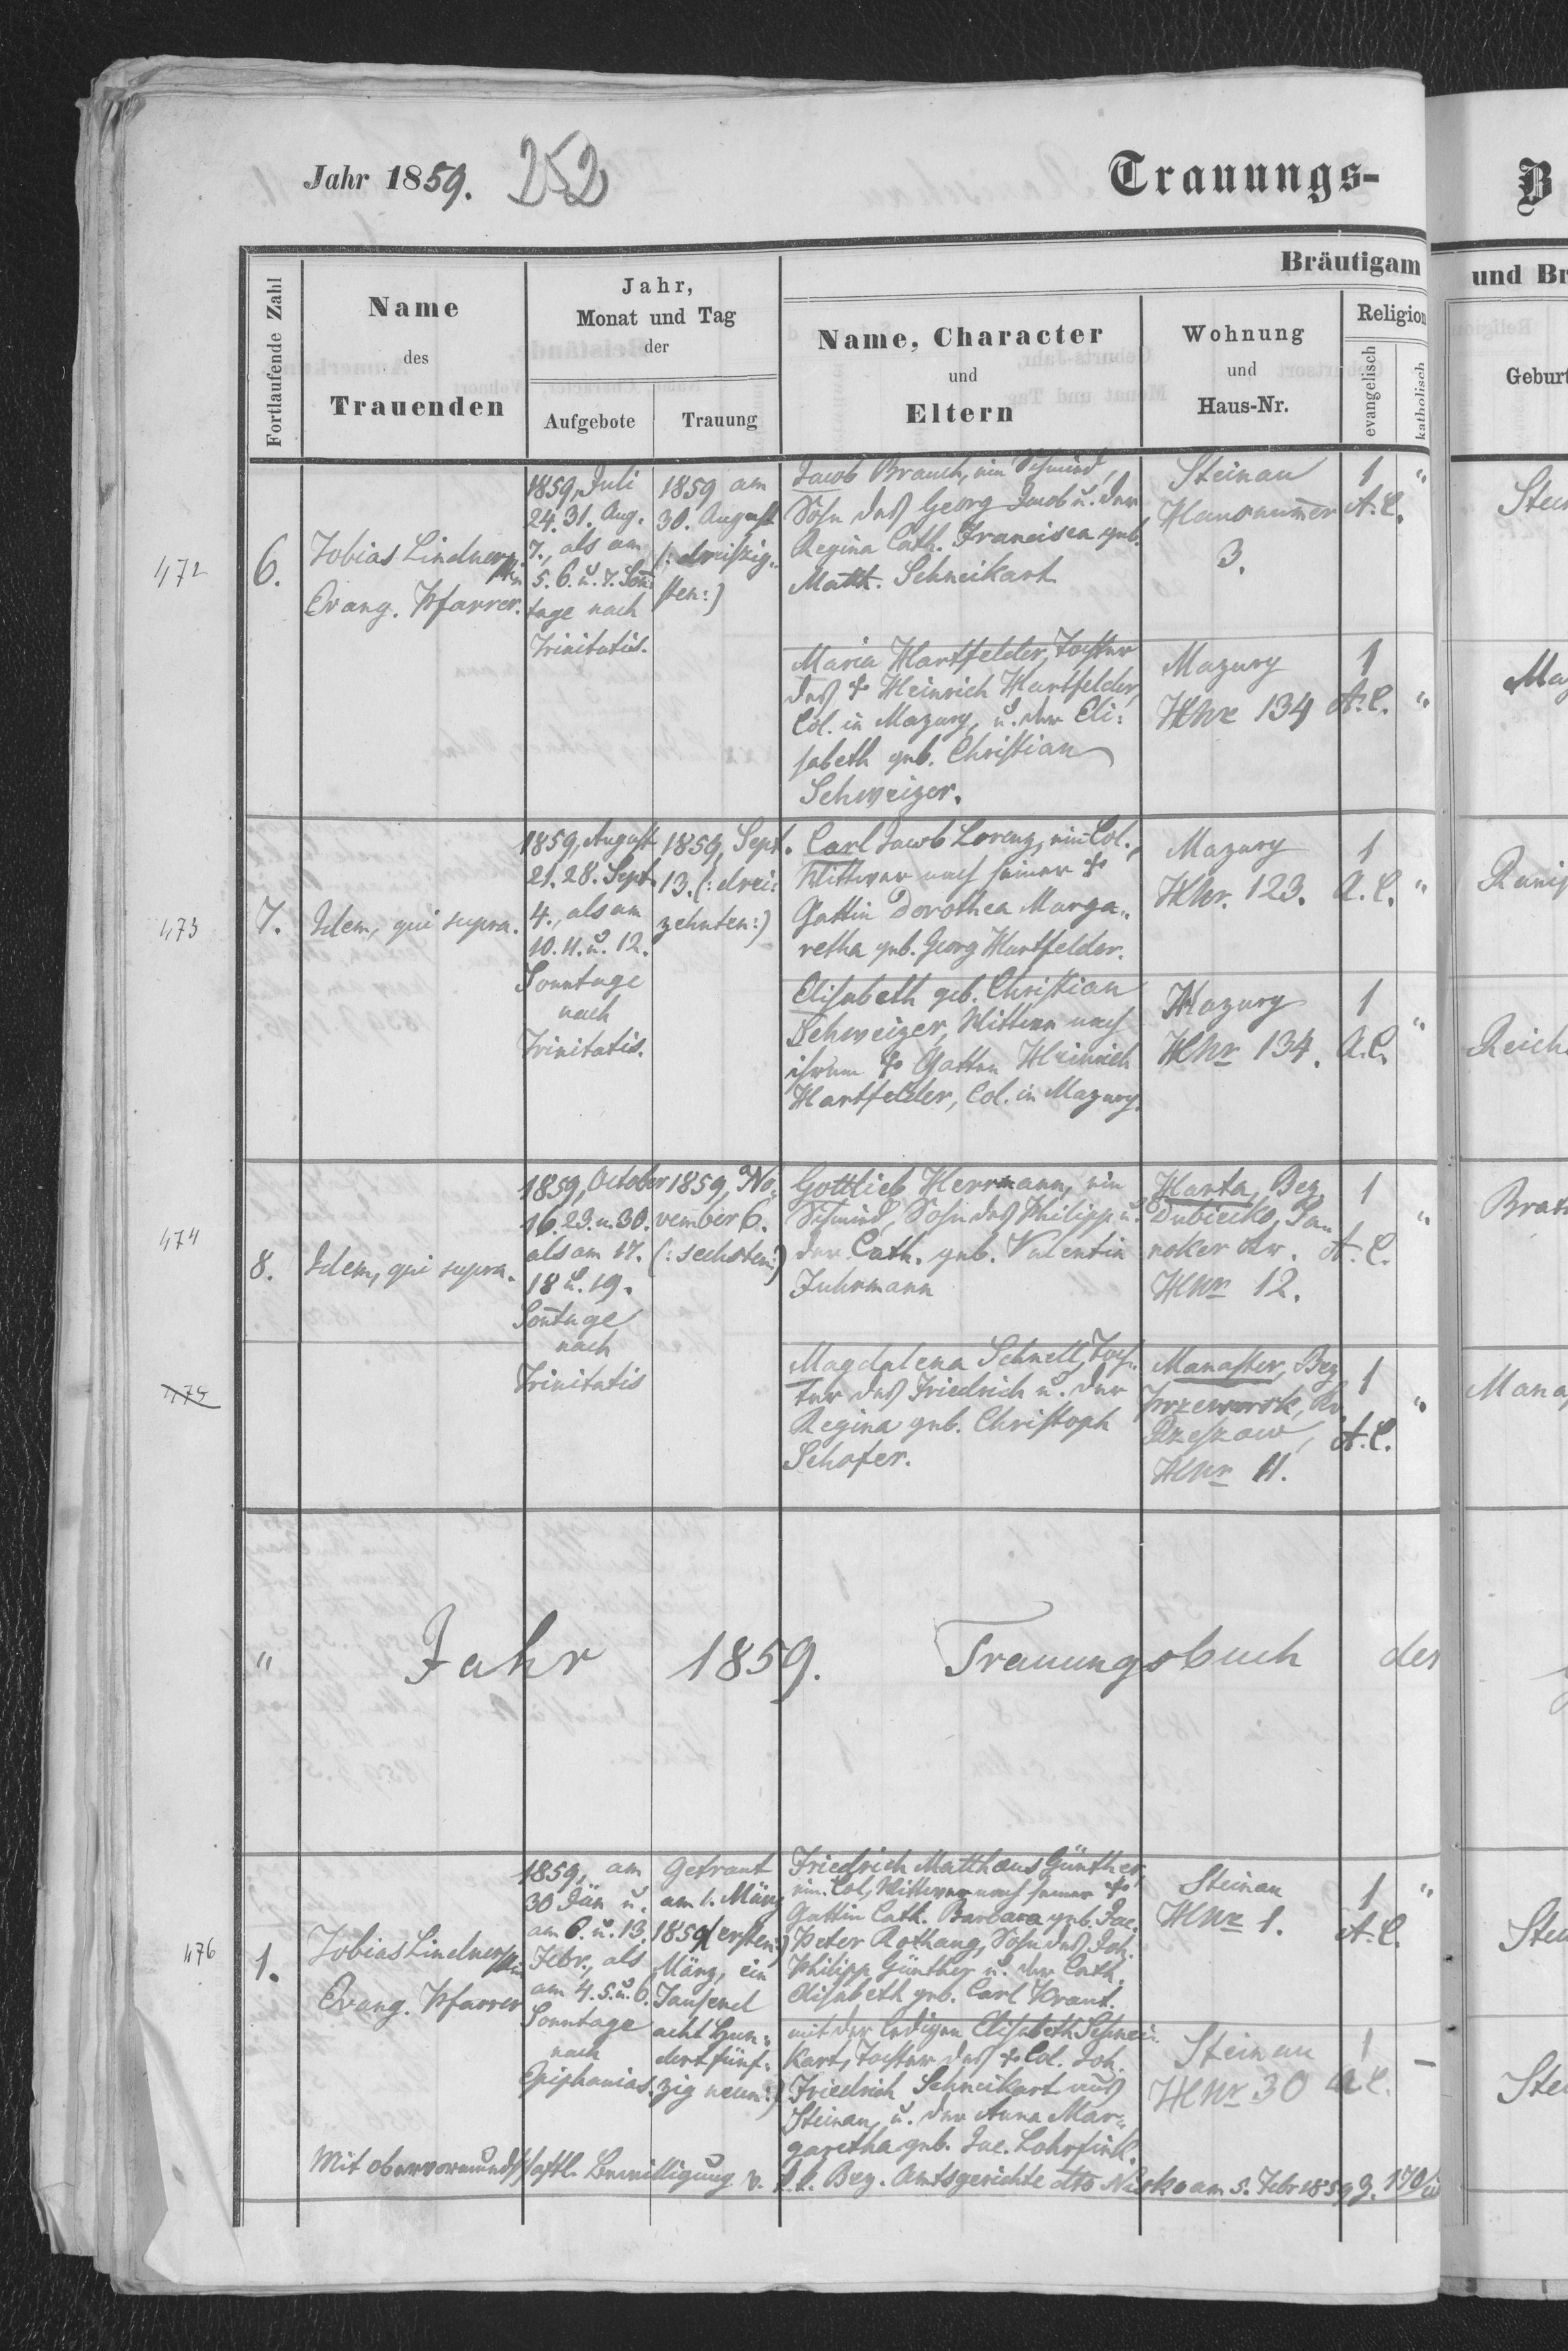 Jahr 1859. 252
Trauungs-
B
Bräutigam
und Br
Fortlaufende Zahl
Name
des
Trauenden
Jahr,
Monat und Tag
der
Aufgebote
Trauung
Name, Character
und
Eltern
Wohnung
und
Haus-Nr.
Religion
evangelisch
katholisch
Geburt
472
6.
Tobias Lindner
Evang. Pfarrer.
1859, Juli
24. 31. Aug.
7., als am
5. 6. u. 7. Son̄
tage nach
Trinitatis.
1859 am
30. August
(: dreißig„
sten:)
Jacob Brauch, ein Schmied,
Sohn des Georg Jacob u. der
Regina Cath. Francisca geb.
Matth. Schneikart
Steinau
Hausnum̄er
3.
1
A. C.
"
Stei
Maria Hartfelder, Tochter
des † Heinrich Hartfelder,
Col. in Mazury, u. der Eli:
sabeth geb. Christian
Schweizer.
Mazury
HNr 134
1
A. C.
"
Ma
473
7.
Idem, qui supra.
1859, August
21. 28. Sept.
4., als am
10. 11. u. 12.
Sonntage
nach
Trinitatis.
1859, Sept.
13. (: drei:
zehnten:)
Carl Jacob Lorenz, ein Col.,
Wittwer nach seiner †
Gattin Dorothea Marga„
retha geb. Georg Hartfelder.
Mazury
HNr. 123.
1
A. C.
"
Ranis
Elisabeth geb. Christian
Schweizer, Wittwe nach
ihrem † Gatten Heinrich
Hartfelder, Col. in Mazury.
Mazury
HNr 134.
1
A. C.
"
Reich
474
8.
Idem, qui supra.
1859, October
16. 23. u. 30.
als am 17.
18 u. 19.
Son̄tage
nach
Trinitatis
1859, No„
vember 6.
(: sechsten:)
Gottlieb Herrmann, ein
Schmied, Sohn des Philipp u.
der Cath. geb. Valentin
Fuhrmann
Harta, Bez
Dubiecko, Sa„
noker Kr.
HNr 12.
1
A. C.
"
Brat
475
Magdalena Schnell, Toch„
ter des Friedrich u. der
Regina geb. Christoph
Schafer.
Manaster, Bez
Przeworsk, Kr
Rzeszow,
HNr 11.
1
A. C.
"
Mana
" Jahr 1859. Trauungsbuch der
476
1.
Tobias Lindner
Evang. Pfarrer
1859, am
30 Jän u.
am 6. u. 13.
Febr., als
am 4. 5. u. 6.
Sonntage
nach
Epiphanias.
Getraut
am 1. März
1859 (ersten:)
März, ein
Tausend
acht Hun:
dert fünf:
zig neun:)
Friedrich Matthäus Günther,
ein Col., Wittwer nach seiner †
Gattin Cath. Barbara geb. Jac.
Peter Rothaug, Sohn des Joh.
Philipp Günther u. der Cath.
Elisabeth geb. Carl Kraut.
Steinau
HNr 1.
1
A. C.
"
Stei
mit der ledigen Elisabeth Schnei:
kart, Tochter des † Col. Joh.
Friedrich Schneikart aus
Steinau, u. der Anna Mar„
garetha geb. Jac. Lohrfink.
Steinau
HNr 30
1
A. C.
–
Stei
Mit obervormundschaftl. Bewilligung v. k. k. Bez. Amtsgerichte dto Nisko am 5. Febr 1859 Z. 170/